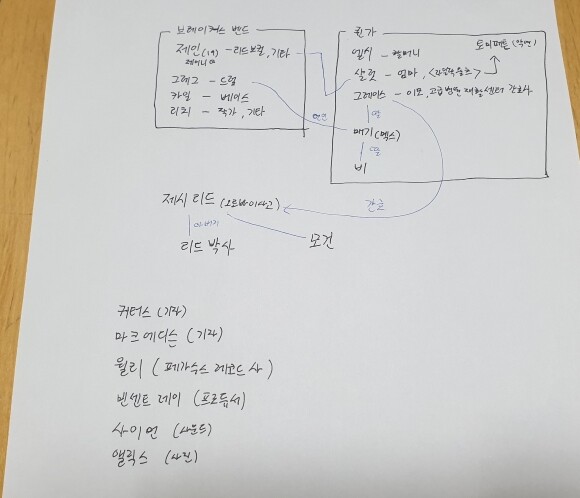 브레이커스 밴드
제인(19) - 리드보컬, 기타
그레그 - 드럼
카일 - 베이스
리치 - 작가, 기타
퀸가
엘시 - 할머니
토미패튼(악연)
샬럿 - 엄마,
그레이스 - 이모, 고급병원 재활센터 간호사
딸
매기(맥스)
딸
비
간호
제시 리드 (오토바이사고)
아버지
리드 박사
모건
커터스 (기자)
마크 에디슨 (기자)
윌리 (페가수스 레코드사)
벤센트 레이 (프로듀서)
사이먼 (사운드)
앨릭스 (사진)